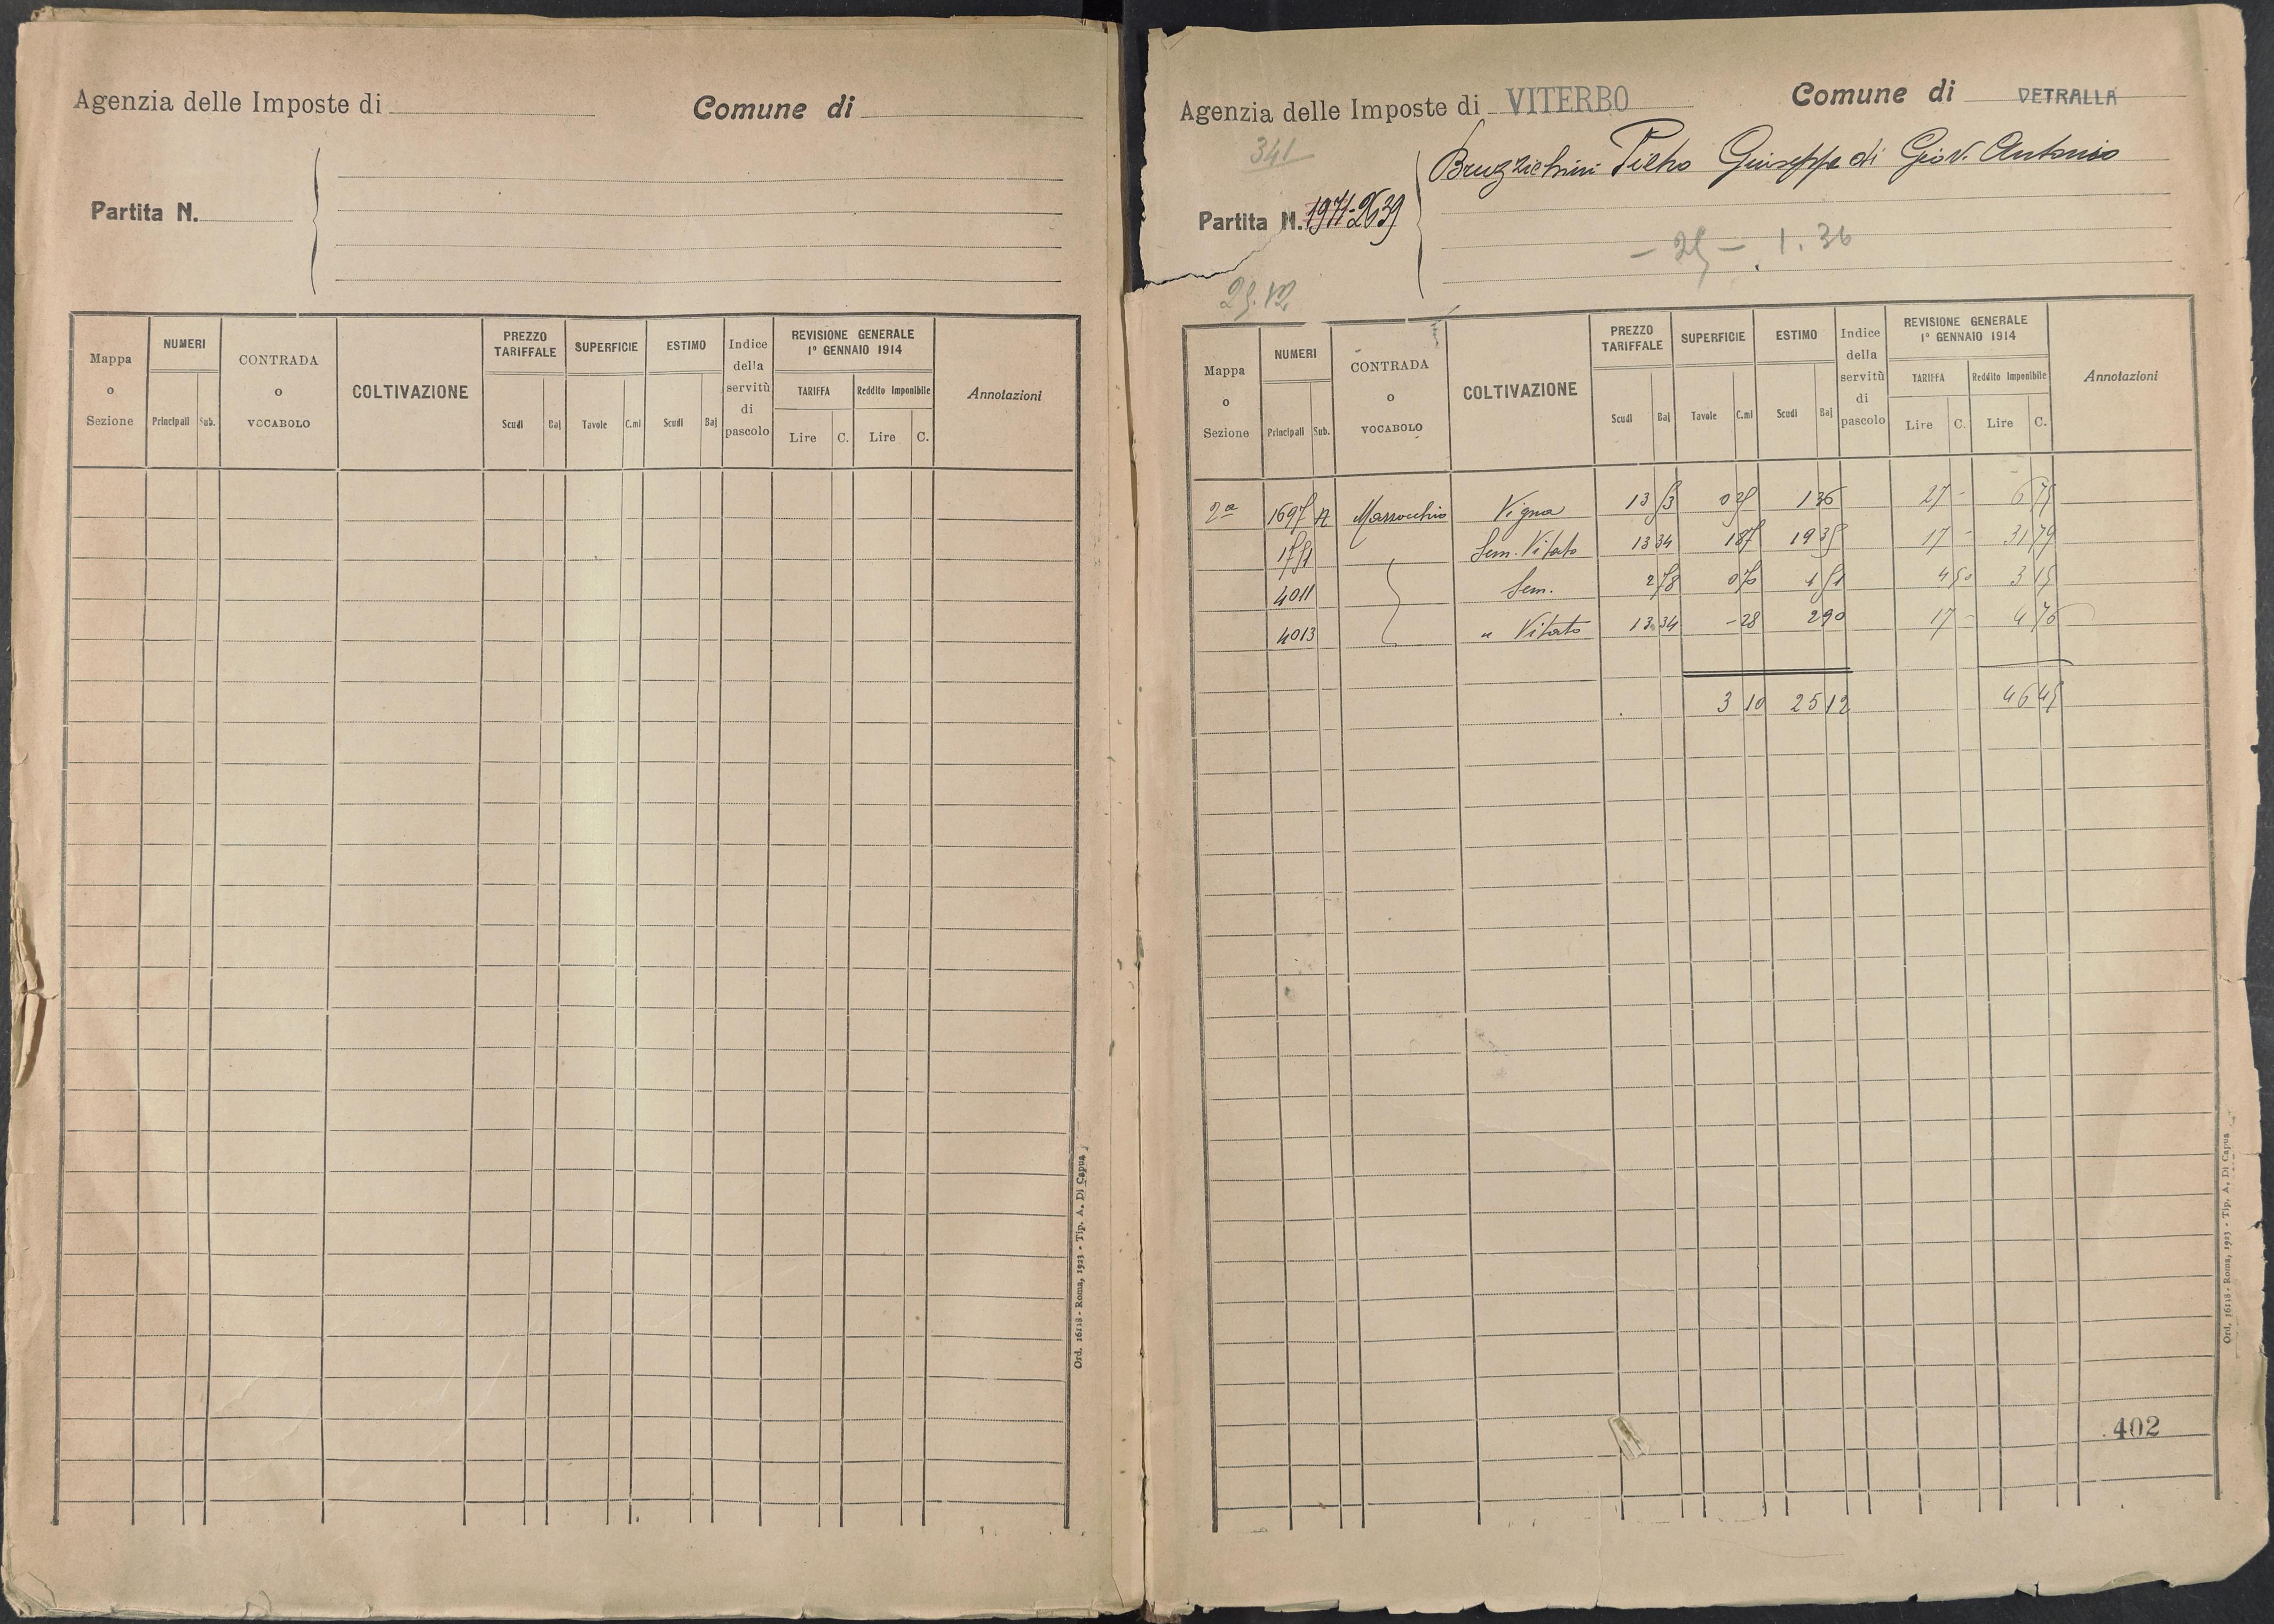 Agenzia delle Imposte di Comune di
Partita N.
Mappa o Sezione
NUMERI
Principali Sub.
CONTRADA o VOCABOLO
COLTIVAZIONE
PREZZO TARIFFALE
Scudi Baj
SUPERFICIE
Tavole C.mi
ESTIMO
Scudi Baj
Indice della servitù di pascolo
REVISIONE GENERALE
1º GENNAIO 1914
TARIFFA Reddito Imponibile
Lire C. Lire C.
Annotazioni
Ord. 16118 - Roma, 1923 - Tip. A. Di Capua
Agenzia delle Imposte di VITERBO Comune di VETRALLA
341
Bruzzichini Pietro Giuseppe di Giov. Antonio
Partita N. 1971-2639
- 25 - 1. 36
25.12
Mappa o Sezione
NUMERI
Principali Sub.
CONTRADA o VOCABOLO
COLTIVAZIONE
PREZZO TARIFFALE
Scudi Baj
SUPERFICIE
Tavole C.mi
ESTIMO
Scudi Baj
Indice della servitù di pascolo
REVISIONE GENERALE
1º GENNAIO 1914
TARIFFA Reddito Imponibile
Lire C. Lire C.
Annotazioni
2ª 1697 Marrocchio Vigna 13 53 0 25 1 36 27 - 6 75
1751 Sem. Vitato 13 34 1 87 19 35 17 - 31 79
4011 Sem. 2 78 0 70 1 51 4 50 3 15
4013 " Vitato 13 34 - 28 2 90 17 - 4 76
3 10 25 12 46 45
402
Ord. 16118 - Roma, 1923 - Tip. A. Di Capua